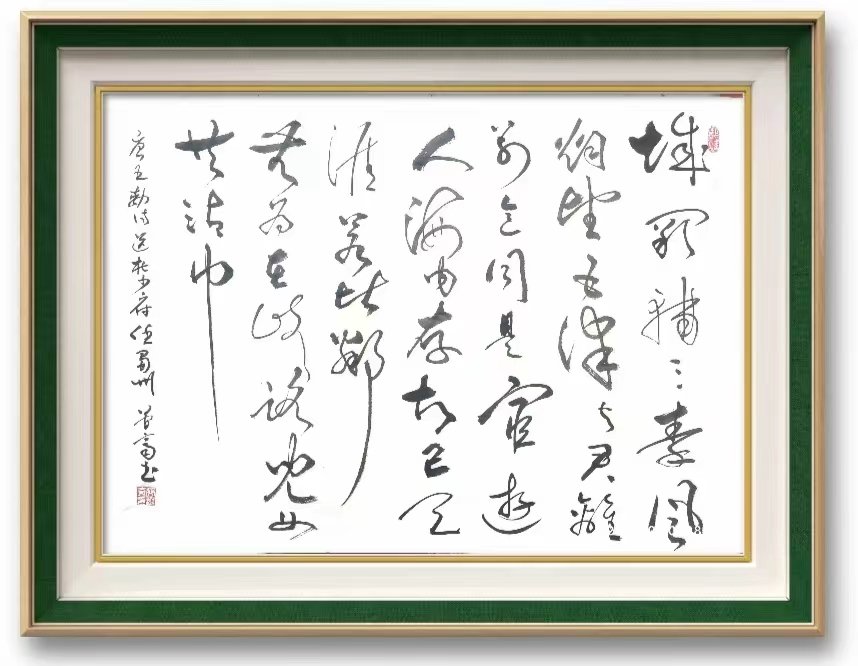 城阙輔三秦風
烟望五津与君離
别意同是宦遊
人海内存知己天
涯若比鄰
无为在歧路兒女
共沾巾
唐王勃诗送杜少府任蜀州 书